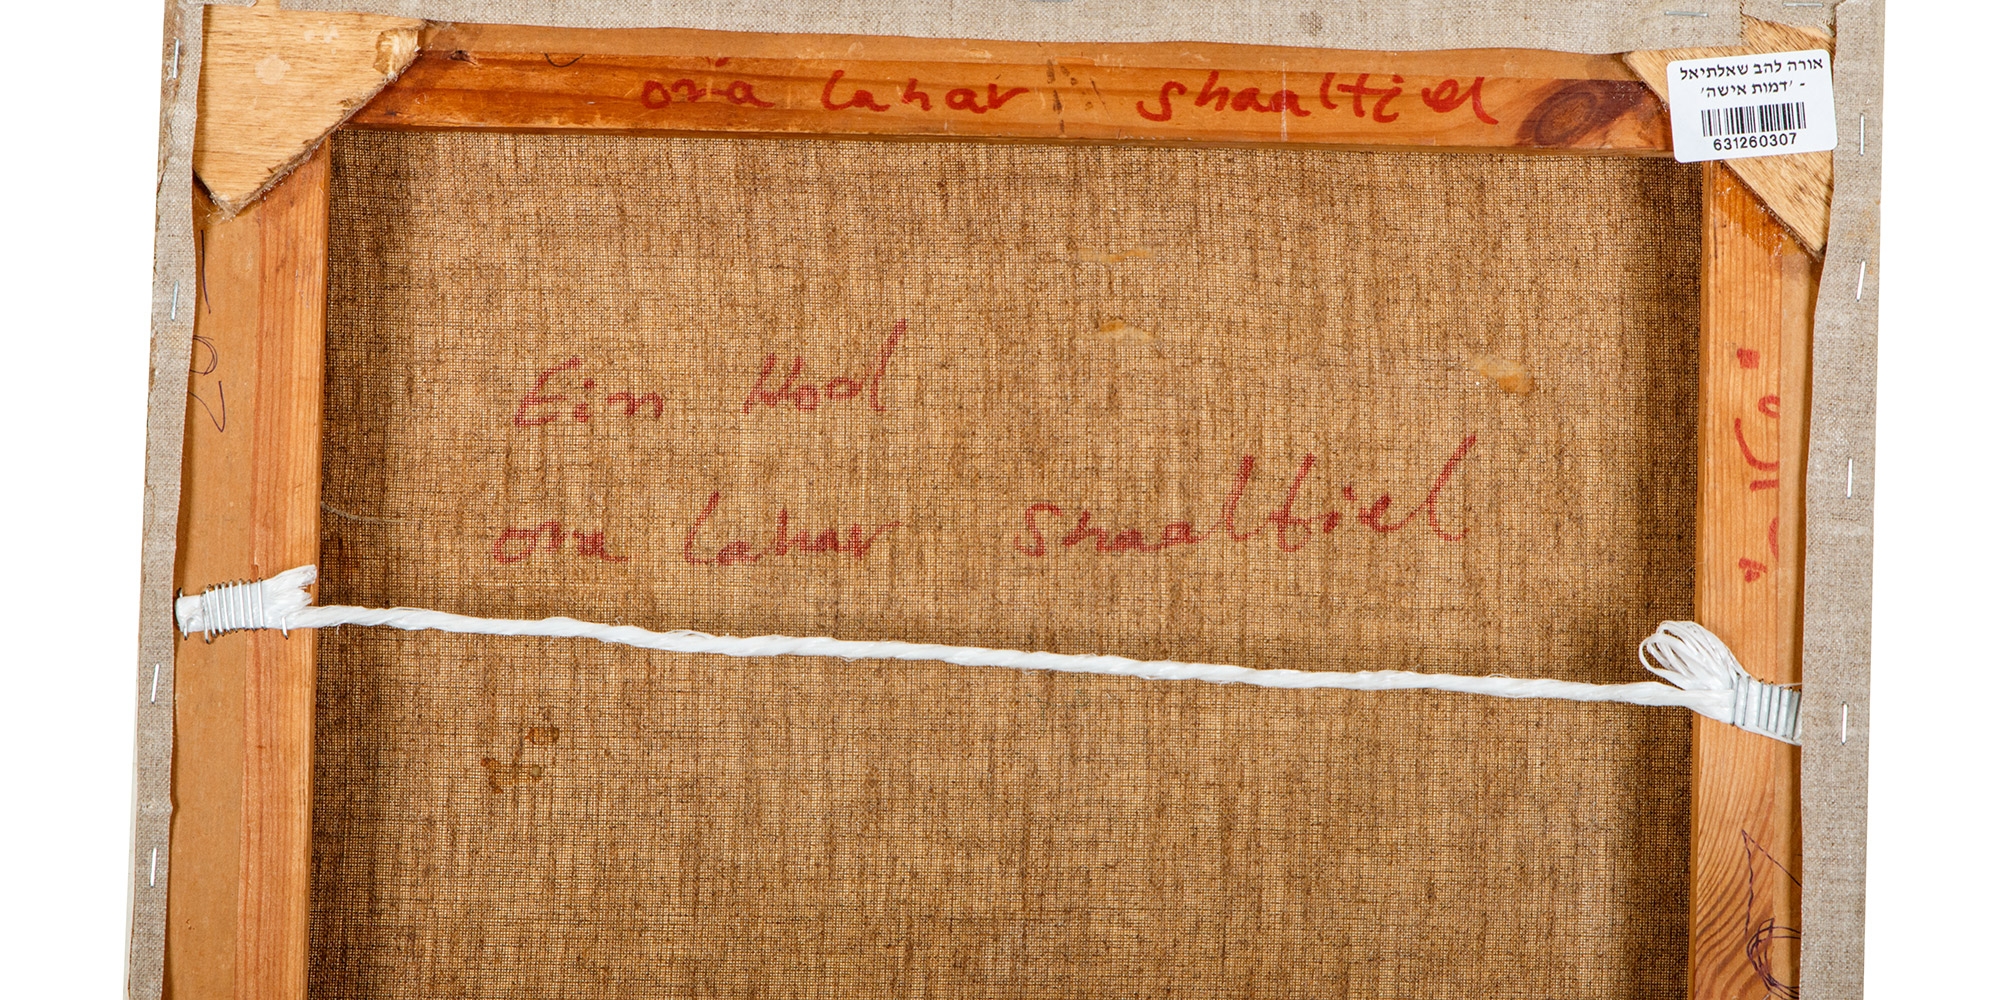 ora lahav shaaltiel
אורה להב שאלתיאל
- 'דמות אישה'
631260307
Ein Hod
ora Lahav Shaaltiel